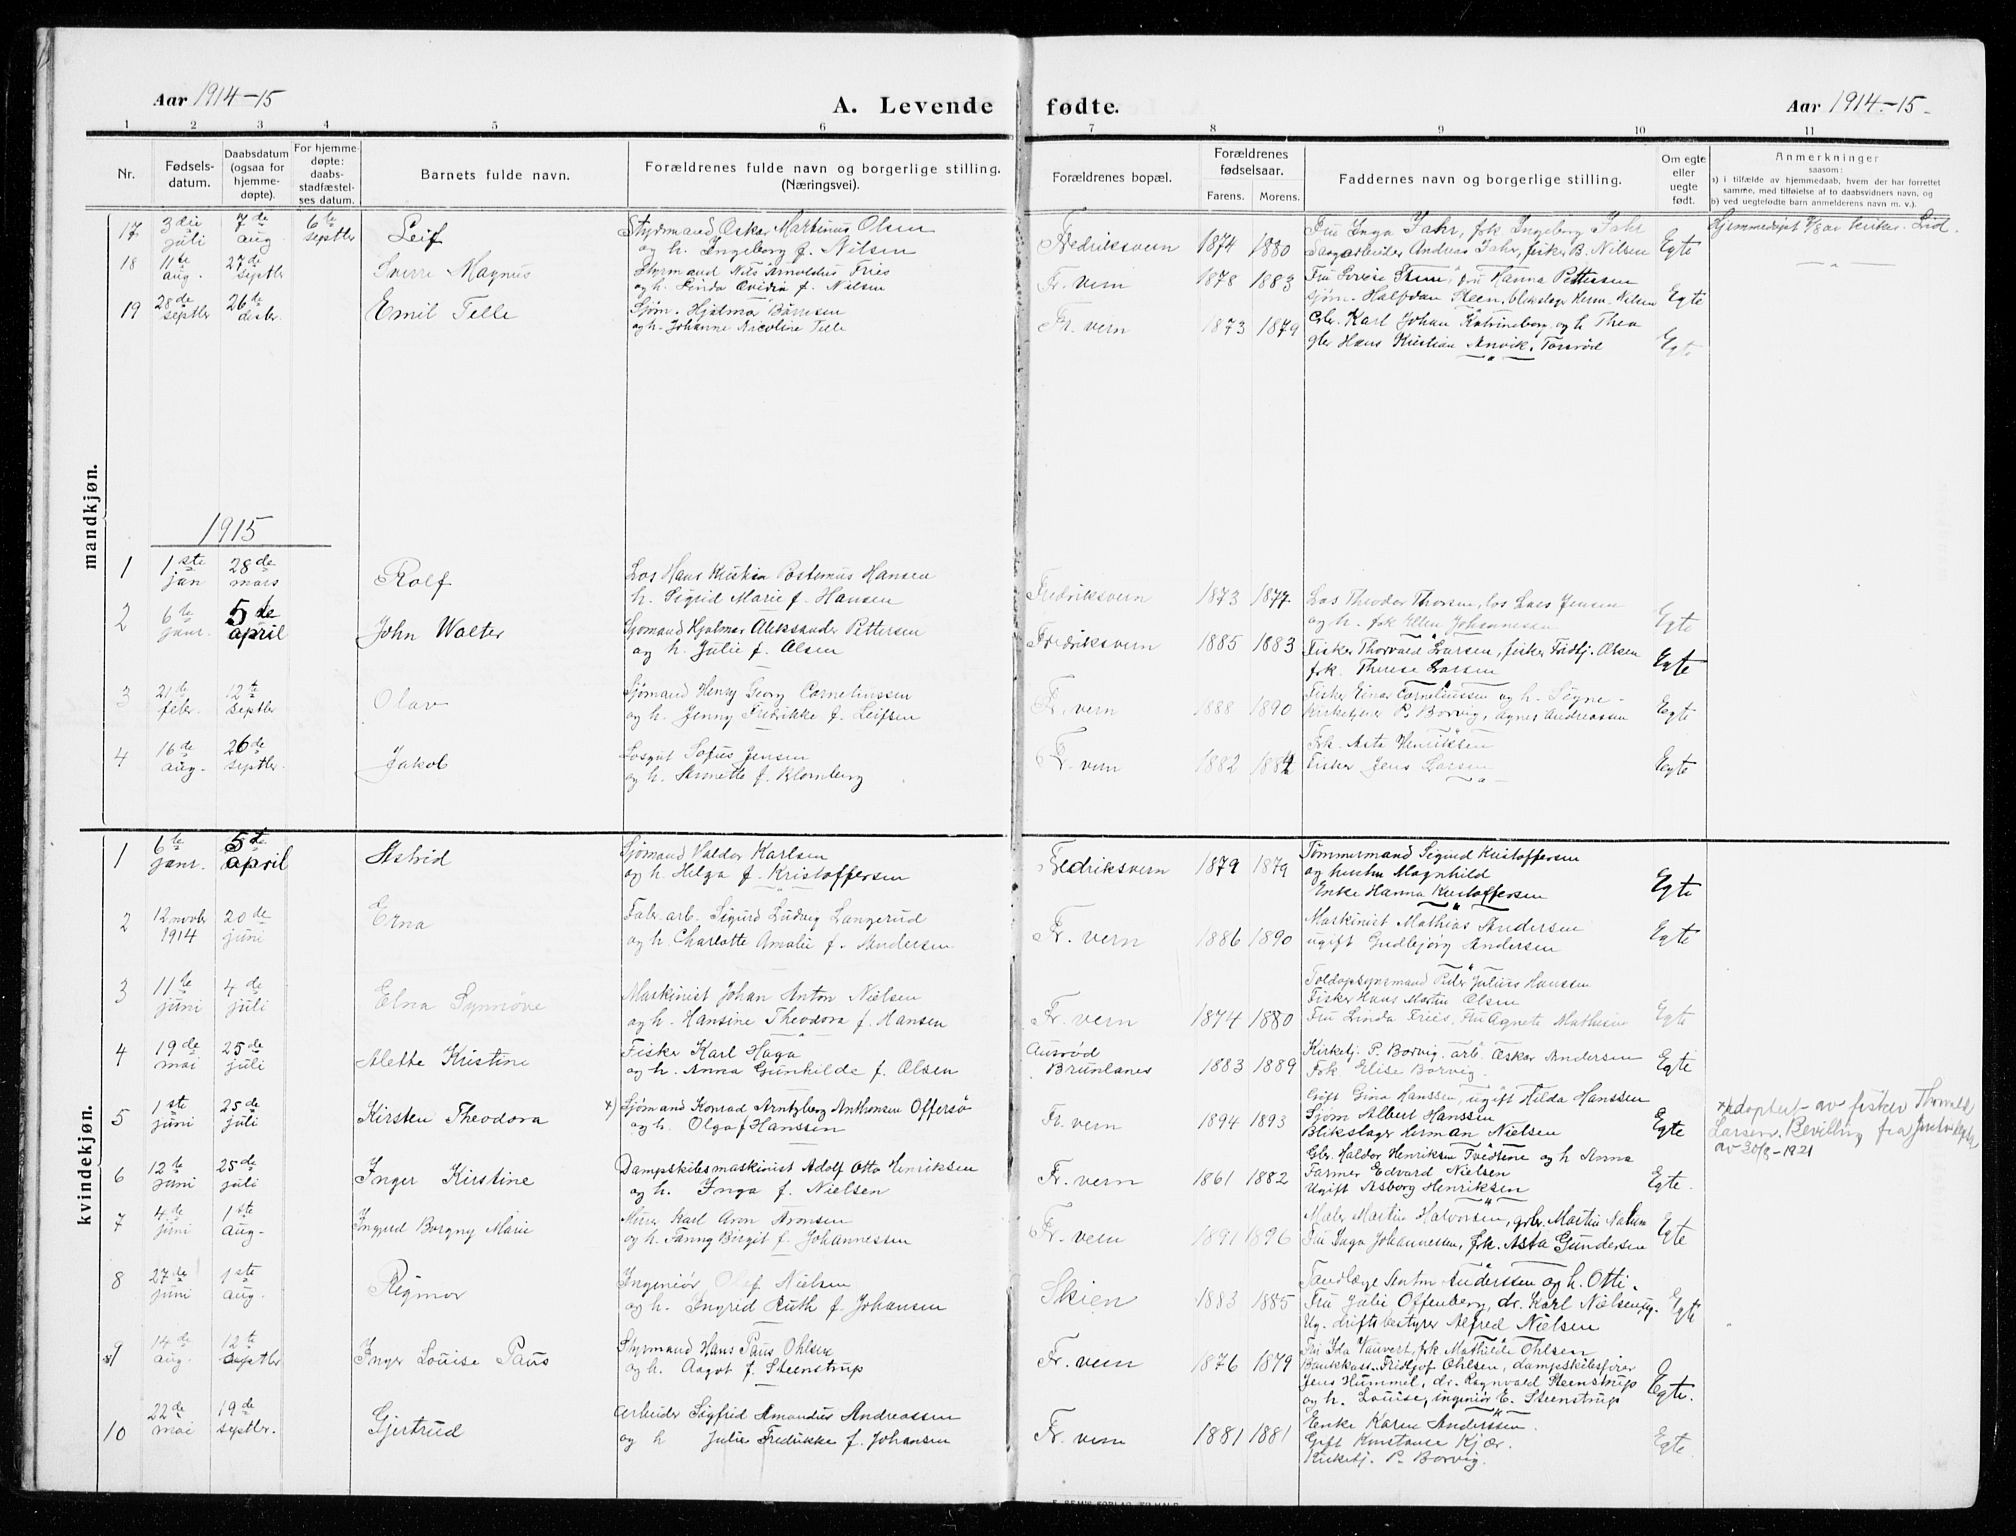 Aar 1914-15
A. Levende
fødte.
Aar 1914-15
1 2 3 4 5 6 7 8 9 10 11
Nr.
Fødsels-
datum.
Daabsdatum
(ogsaa for
hjemme-
døpte).
For hjemme-
døpte:
daabs-
stadfæstel-
ses datum.
Barnets fulde navn.
Forældrenes fulde navn og borgerlige stilling.
(Næringsvei).
Forældrenes bopæl.
Forældrenes
fødselsaar.
Farens. Morens.
Faddernes navn og borgerlige stilling.
Om egte
eller
uegte
født.
Anmerkninger
saasom:
a) i tilfælde av hjemmedaab, hvem der har forrettet
samme, med tilføielse af to daabsvidners navn, og
b) ved uegtefødte barn anmelderens navn m. v.).
mandkjøn.
17 3die juli 7de aug. 6te septbr Leif
Styrmand Oskar Martinus Olsen
og h. Ingeborg f. Nilsen
Fredriksvern 1874 1880
Fru Inga Jahr, frk Ingeborg Jahr
Andreas Jahr, fisker B. Nilsen
Egte
Hjemmedøpt
18 11te aug. 27de septbr Sverre Magnus
Styrmand Nils Arnoldus Fries
og h. Linda Ovidia f. Nilsen
Fr. vern 1878 1883
Fru Lovise Steen, fru Hanna Pettersen
Sjøm. Halfdan Steen, blekslager Herm. Nilsen
Egte
19 28de septbr 26de decbr. Emil Telle
Sjøm. Hjalmar Børresen
og h. Johanne Nicoline Telle
Fr. vern 1873 1879
Karl Johan Katrineborg og h Thea
Hans Kristian Anvik, Torsrød
Egte
1915
1 1ste jan 28de mars Rolf
Los Hans Kristian Postumus Hansen
h. Sigrid Marie f. Hansen
Fredriksvern 1873 1877
Los Theodor Thorsen, los Lars Jensen
og h. frk Ellen Johannessen
Egte
2 6te janr. 5te april John Walter
Sjømand Hjalmar Aleksander Pettersen
og h. Julie f. Olsen
Fredriksvern 1885 1883
Fisker Thorvald Larsen, fisker Fridtj. Olsen
frk. Therese Larsen
Egte
3 21de febr. 12te septbr Olav
Sjømand Henry Georg Corneliussen
og h. Jenny Fredrikke f. Leifsen
Fr. vern 1888 1890
Fisker Einar Corneliussen og h. Signe
Kirketjener P. Borvig, Agnes Andreassen
Egte
4 16de aug. 26de septbr. Jakob
Losgut Sofus Jensen
og h. Annette f. Klomberg
Fr. vern 1882 1884
Frk. Asta Henriksen
Fisker Jens Larsen
Egte
kvindekjøn.
1 6te janr. 5te april Astrid
Sjømand Valdor Karlsen
og h. Helga f. Kristoffersen
Fredriksvern 1879 1879
Tømmermand Sigurd Kristoffersen
og hustru Magnhild
Enke Hanna Kristoffersen
Egte
2 12 novbr 1914 20de juni Erna
Fabr. arb. Sigurd Ludvig Langerud
og h. Charlotte Amalie f. Andersen
Fr. vern 1886 1890
Maskinist Mathias Andersen
ugift Gudbjørg Andersen
Egte
3 11te juni 4de juli Elna Synnøve
Maskinist Johan Anton Nielsen
og h. Hansine Theodora f. Hansen
Fr. vern 1874 1880
Toldopsynsmand Peder Julius Hanssen
Fisker Hans Martin Olsen
Fru Linda Fries, Fru Agnete Mathisen
Egte
4 19de mai 25de juli Alette Kristine
Fisker Karl Haga
og h. Anna Gunhilde f. Olsen
Ausrød Brunlanes 1883 1889
Kirketj. P. Borvig, arb. Oskar Andersen
Frk. Elise Borvig.
Egte
5 1ste juni 25de juli Kirsten Theodora
x) Sjømand Konrad Arntzberg Anthonsen Offersø
og h. Olga f Hanssen
Fr. vern 1894 1893
Gift Gina Hanssen, ugift Hilda Hanssen
Sjøm Albert Hanssen
Blikslager Herman Nielsen
Egte
x) adoptert av fisker Thorvald
Larsen. Bevilling fra
av 30/8-1921
6 12te juni 25de juli Inger Kirstine
Dampskibsmaskinist Adolf Otto Henriksen
og h. Inga f. Nielsen
Fr. vern 1861 1882
Gbr Haldor Henriksen Tvedtene og h Anna
Farmer Edvard Nielsen
Ugift Asborg Henriksen
Egte.
7 4de juni 1ste aug. Ingerd Borgny Marie
Murer Karl Aron Aronsen
og h. Fanny Birgit f. Johannessen
Fr. vern 1891 1896
Maler Martin Halvorsen, grbr. Martin
Fru Dага Johannessen, frk. Asta Gundersen
Egte
8 27de juni 1ste aug. Rigmor
Ingeniør Olaf Nielsen
og h. Ingrid Ruth f. Johansen
Skien 1883 1885
Tandlæge Anton Anderssen og h. Otti.
Fru Julie Offenberg, dr. Karl Nielsen,
Ug. driftsbestyrer Alfred Nielsen
Egte
9 14de aug. 12te septbr. Inger Louise Paus
Styrmand Hans Paus Ohlsen
og h. Aagot f. Steenstrup
Fr. vern 1876 1879
Fru Ida Vauvert, frk Mathilde Ohlsen
Bankkass. Fridtjof Ohlsen, dampskibsfører
Jens Hummel, dr. Ragnvald Steenstrup
og h. Louise, ingeniør E. Steenstrup
Egte.
10 22de mai 19de septbr. Gjertrud
Arbeider Sigfrid Amandus Andreassen
og h Julie Fredrikke f. Johansen
Fr. vern 1881 1881
Enke Karen Anderssen
Gift Konstanse Kjær.
Kirketj. P. Borvig.
Egte